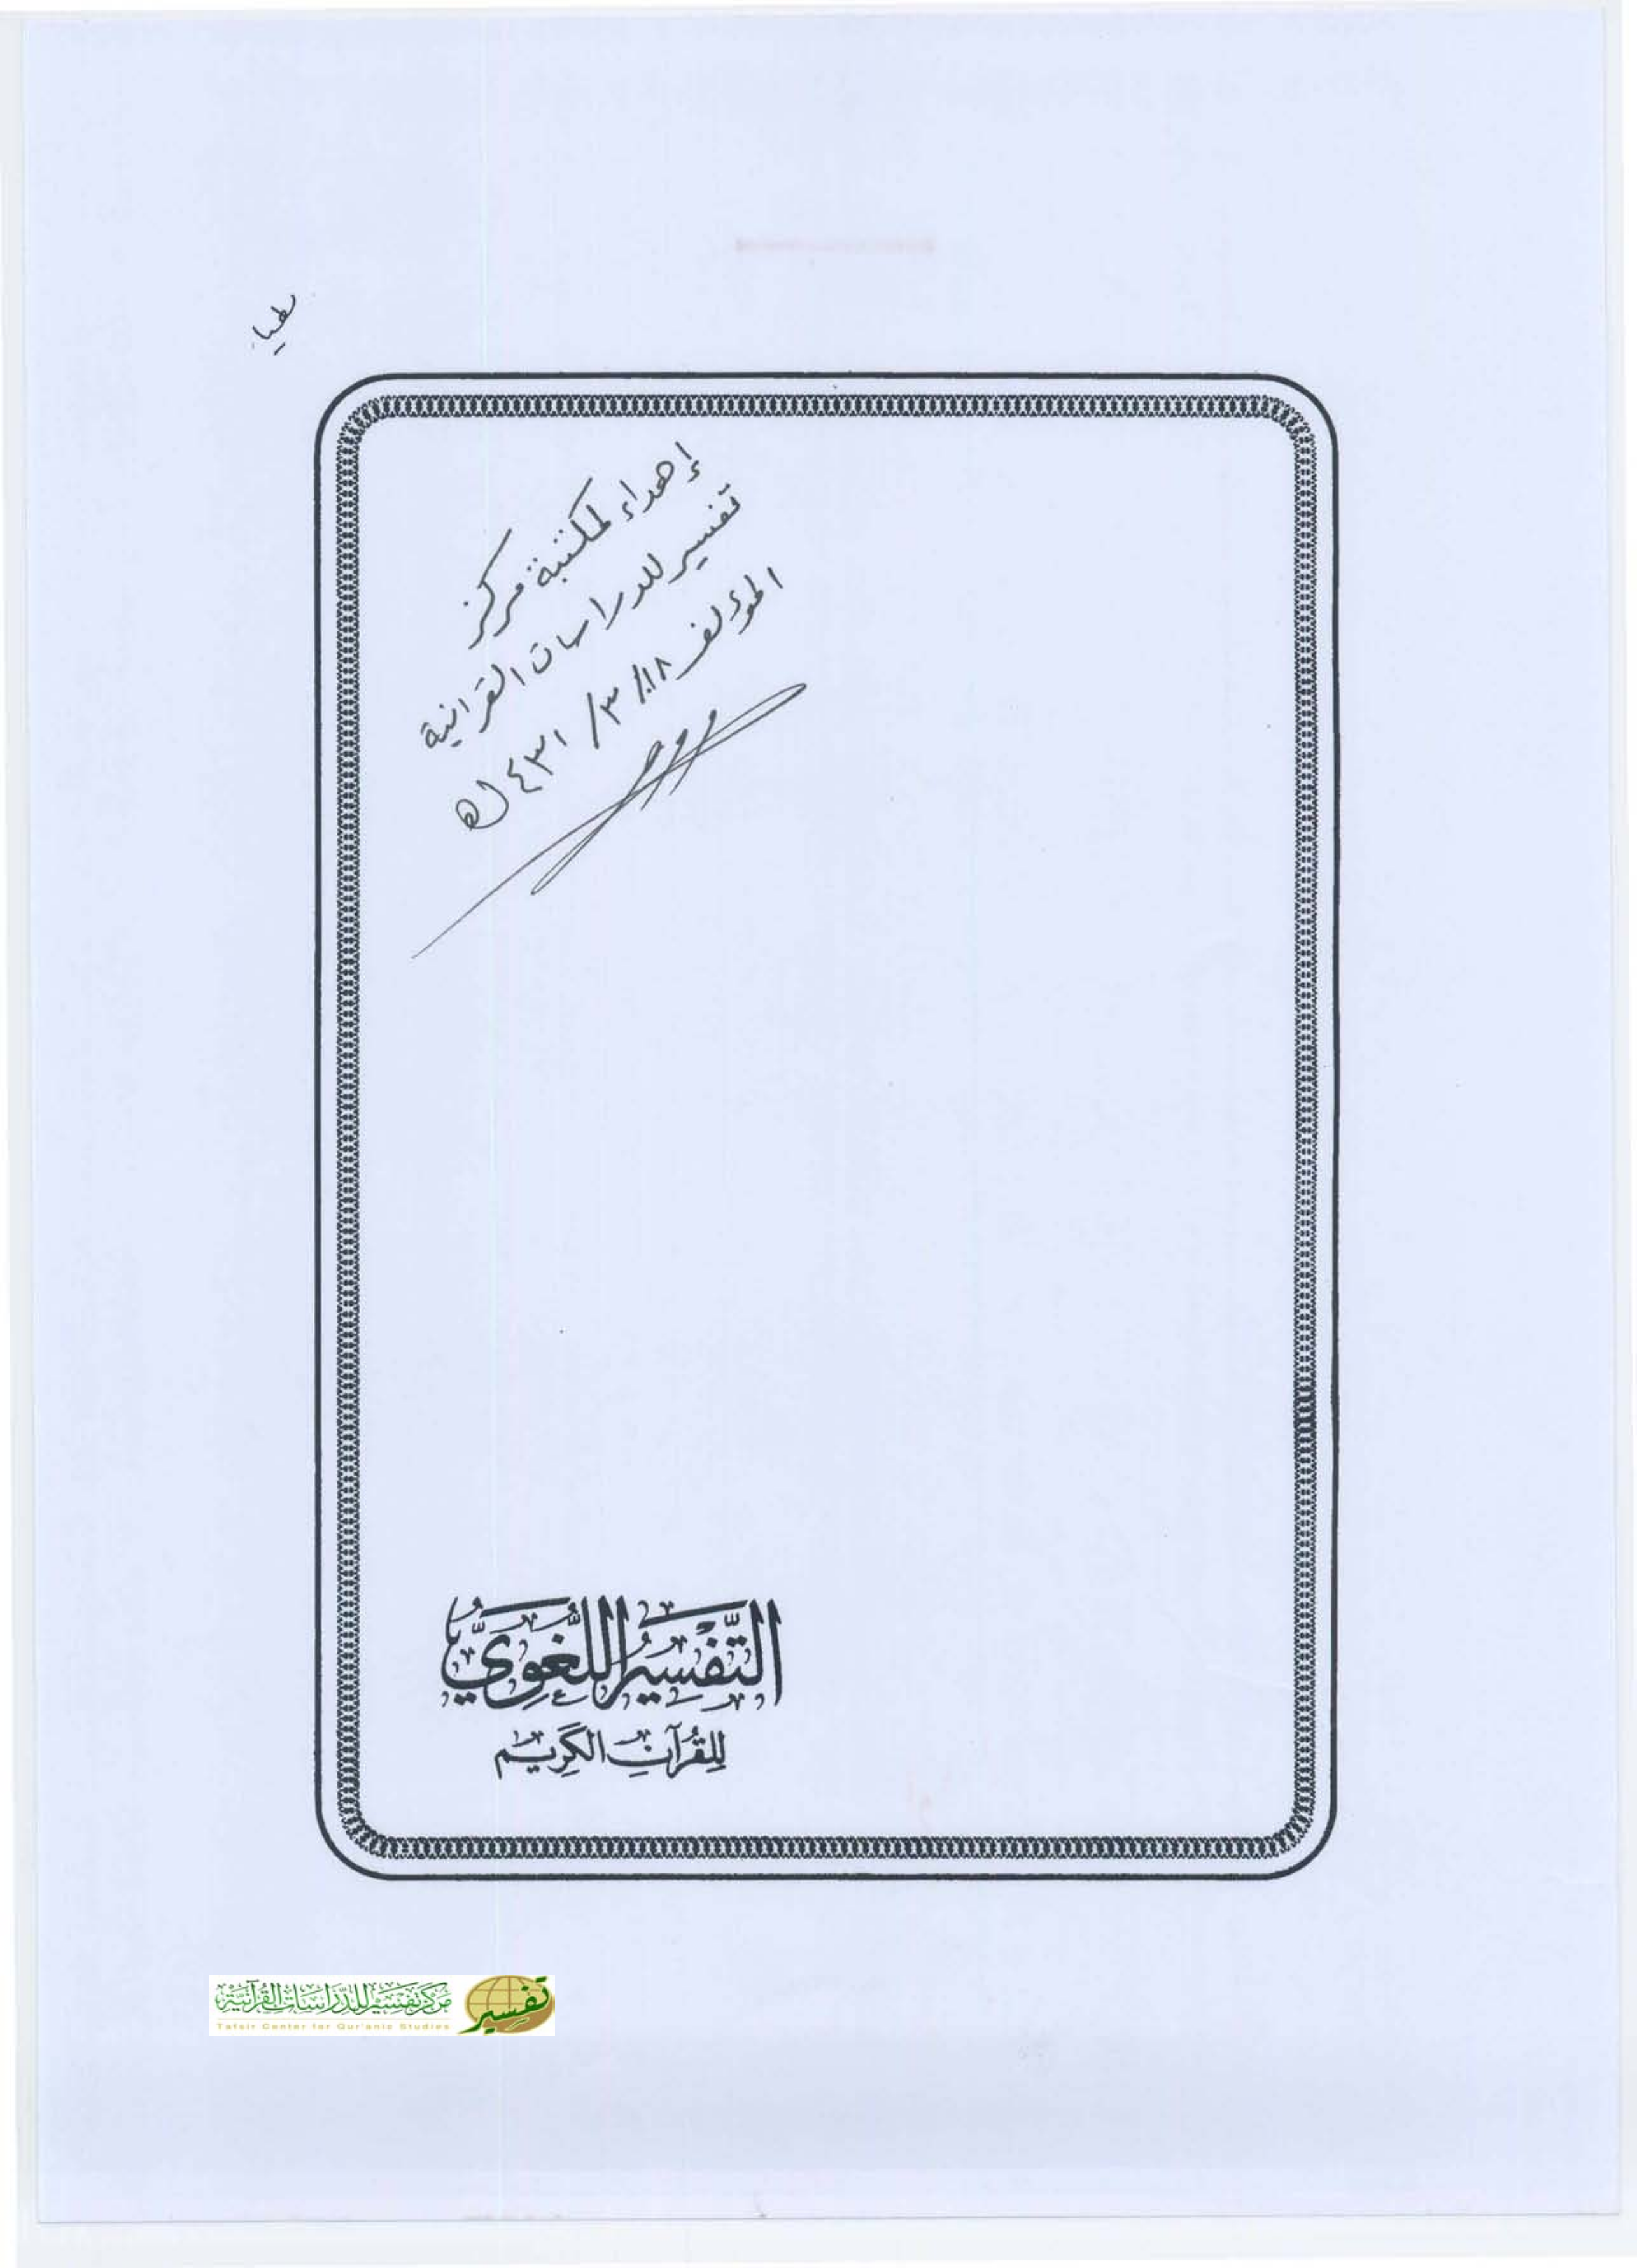 إهداء لمكتبة مركز
تفسير للدراسات القرآنية
المؤلف ١٨/ ٣/ ١٤٣١هـ
التَّفْسِيرُ اللُّغَوِيُّ
لِلْقُرْآنِ الكَرِيم
مركز تفسير للدراسات القرآنية
تفسير
Tafsir Center for Qur'anic Studies